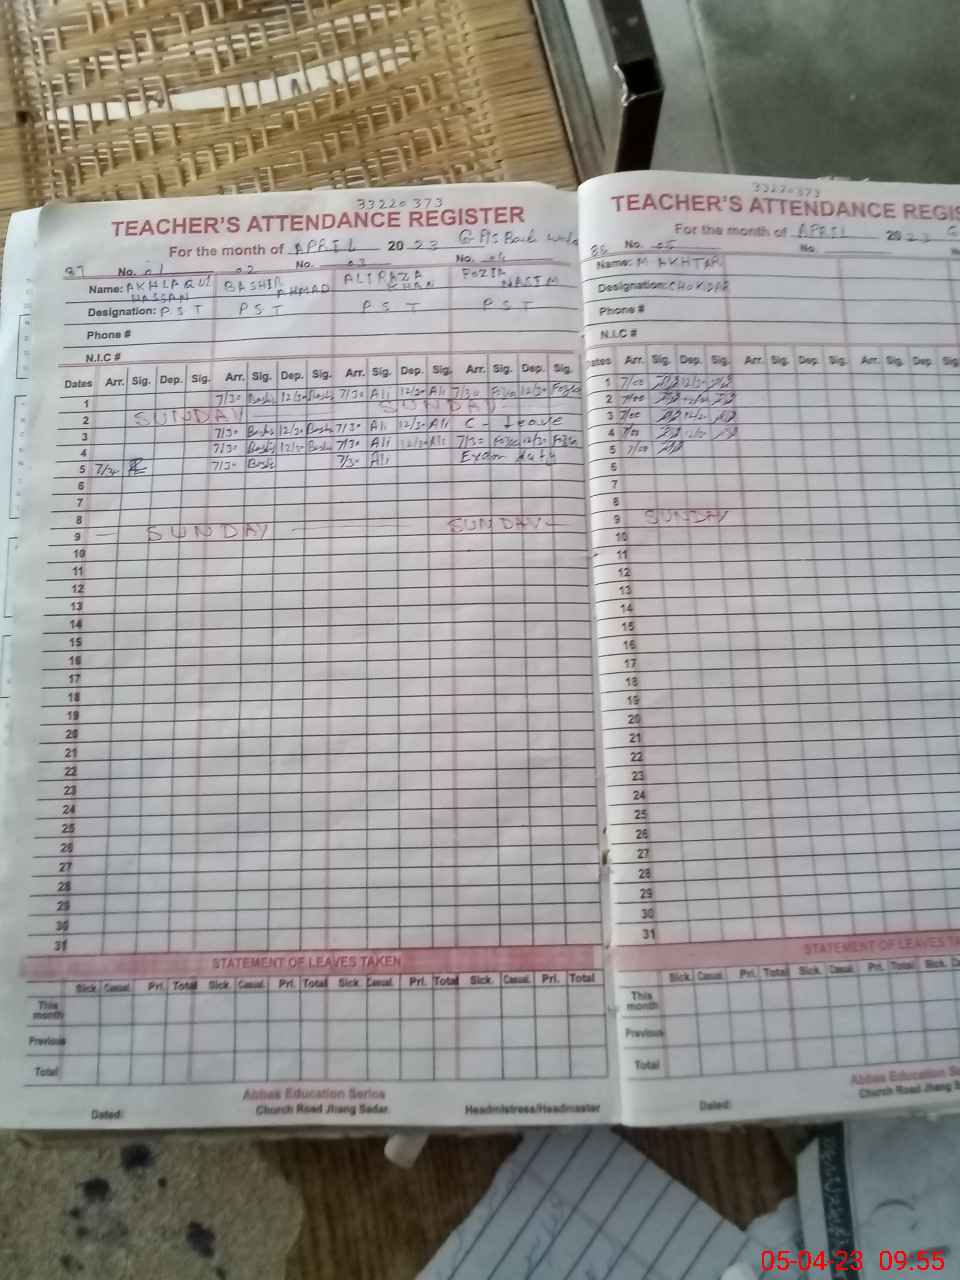 33220373
TEACHER'S ATTENDANCE REGISTER
For the month of APRIL 2023 GPS
87 No. 01 02 No. 03 No. 04
Name: AKHLAQ UL HASSAN BASHIR AHMAD ALI RAZA KHAN FOZIA NASIM
Designation: P S T P S T P S T P S T
Phone #
N.I.C #
Dates Arr. Sig. Dep. Sig. Arr. Sig. Dep. Sig. Arr. Sig. Dep. Sig. Arr. Sig. Dep. Sig.
1 7/30 Bashir 12/30 Bashir 7/30 Ali 12/30 Ali 7/30 Fozia 12/30 Fozia
2 SUNDAY SUNDAY
3 7/30 Bashir 12/30 Bashir 7/30 Ali 12/30 Ali C - Leave
4 7/30 Bashir 12/30 Bashir 7/30 Ali 12/30 Ali 7/30 Fozia 12/30 Fozia
5 7/30 7/30 Bashir 7/30 Ali Exam duty
6
7
8
9 SUNDAY SUNDAY
10
11
12
13
14
15
16
17
18
19
20
21
22
23
24
25
26
27
28
29
30
31
STATEMENT OF LEAVES TAKEN
Sick. Casual. Pri. Total Sick. Casual. Pri. Total Sick. Casual. Pri. Total Sick. Casual. Pri. Total
This month
Previous
Total
Abbas Education Series
Church Road Jhang Sadar.
Dated: Headmistress/Headmaster
33220373
TEACHER'S ATTENDANCE REGIS
For the month of APRIL 2023 G
88 No. 05 No.
Name: M AKHTAR
Designation: CHOKIDAR
Phone #
N.I.C #
Dates Arr. Sig. Dep. Sig. Arr. Sig. Dep. Sig. Arr. Sig. Dep. Sig.
1 7/00 12/30
2 7/00 12/30
3 7/00 12/30
4 7/00 12/30
5 7/00
6
7
8
9 SUNDAY
10
11
12
13
14
15
16
17
18
19
20
21
22
23
24
25
26
27
28
29
30
31
STATEMENT OF LEAVES TA
Sick. Casual. Pri. Total Sick. Casual. Pri. Total Sick.
This month
Previous
Total
Abbas Education Se
Church Road Jhang S
Dated:
05-04-23 09:55